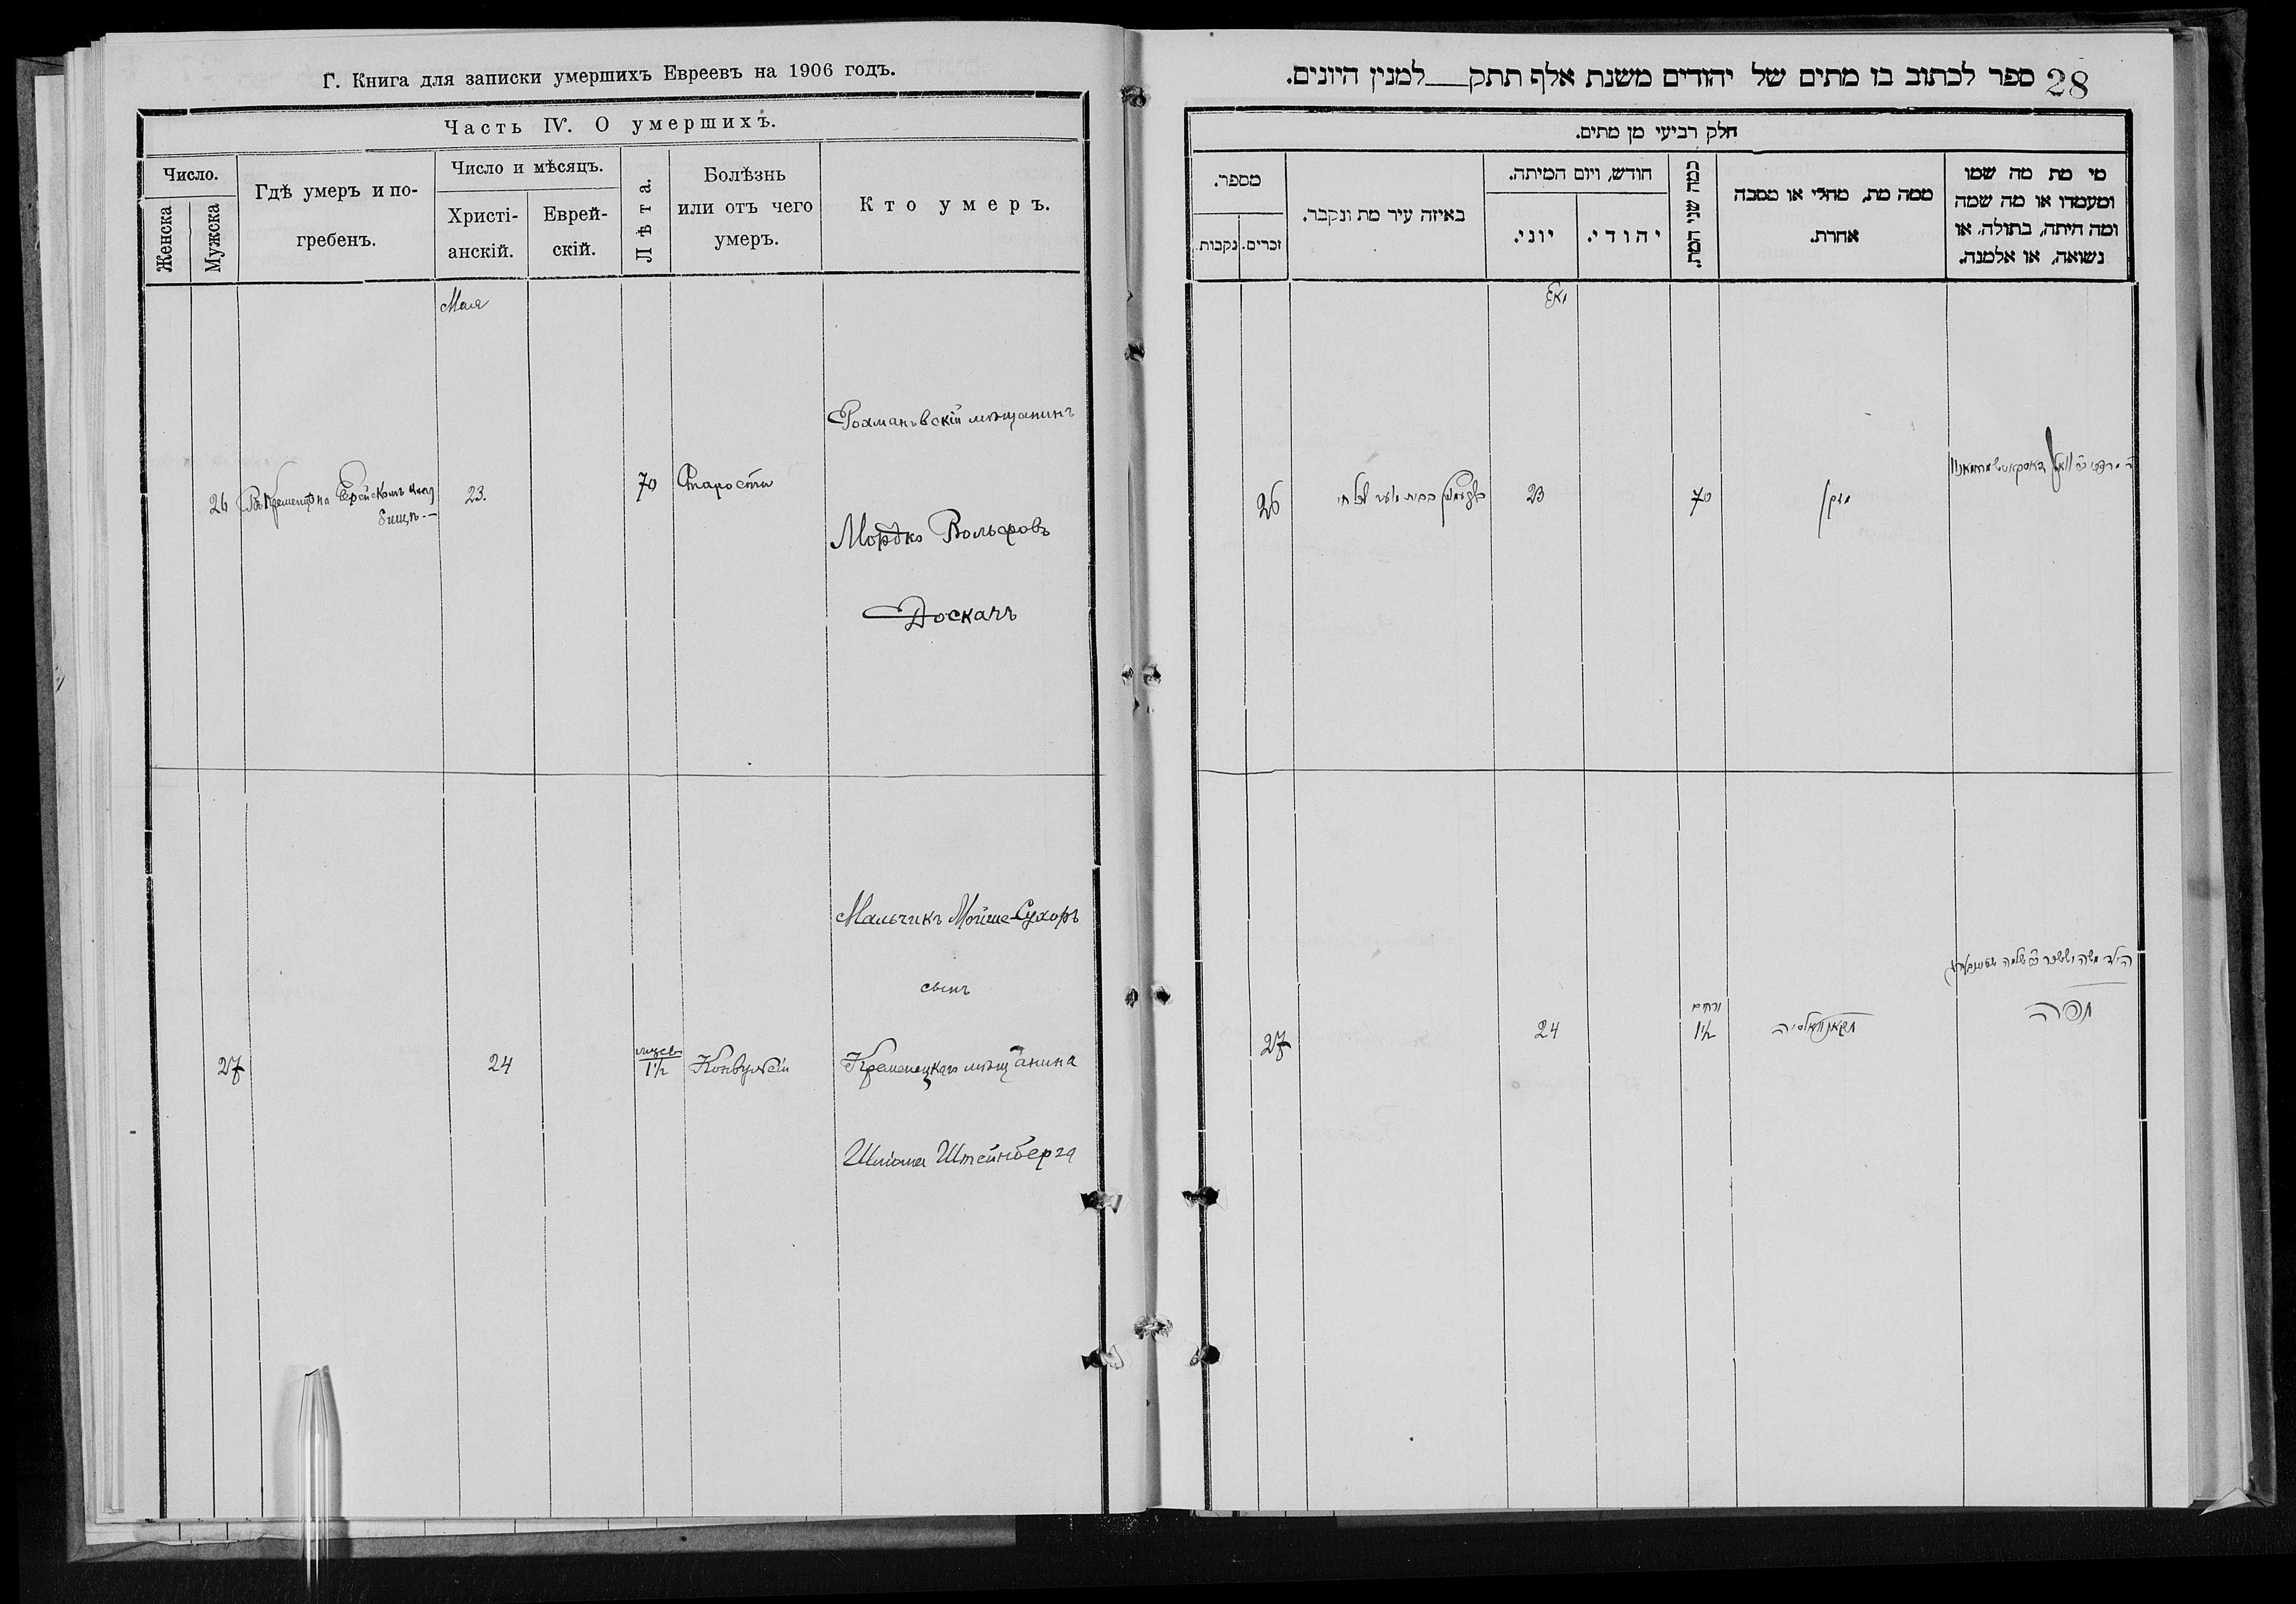 Г. Книга для записки умершихъ Евреевъ на 1906 годъ.
Часть IV. О умершихъ.
Число.
Женска
Мужска
Гдѣ умеръ и по-
гребенъ.
Число и мѣсяцъ.
Христі-
анскій.
Еврей-
скій.
Лѣта.
Болѣзнь
или отъ чего
умеръ.
Кто умеръ.
Мая
26
Въ Кременцѣ на Еврейскомъ клад
бищѣ --
23.
70
Старости
Рохмановскій мѣщанинъ
Мордко Вольфовъ
Доскачъ
27
24
мѣсев
1½
Конвульсіи
Мальчикъ Мойше-Сухоръ
сынъ
Кременецкаго мѣщанина
Шліома Штейнберга
28
ספר לכתוב בו מתים של יהודים משנת אלף תתק___למנין היונים.
חלק רביעי מן מתים.
מספר.
נקבות
זכרים.
באיזה עיר מת ונקבר.
חודש, ויום המיתה.
יוני.
יהודי.
כמה שני המת.
ממה מת, מחלי או מסבה
אחרת.
מי מת מה שמו
ומעמדו או מה שמה
ומה היתה, בתולה, או
נשואה, או אלמנה.
מאי
26
23
70
זקן
27
24
ירחים
1½
הילד משה יששכר שלמה